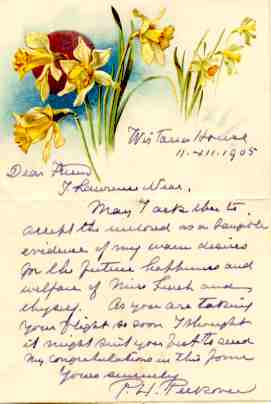 Wistaria House
11.XII.1905
Dear Friend
J Lawrence
May I ask thee to
accept the enclosed as a tangible
evidence of my warm desires
for the future happiness and
welfare of Miss and
thyself. As you are taking
your flight so soon I thought
it might suit you best to send
my congratulations in this form
Yours sincerely
P. H. Peckover